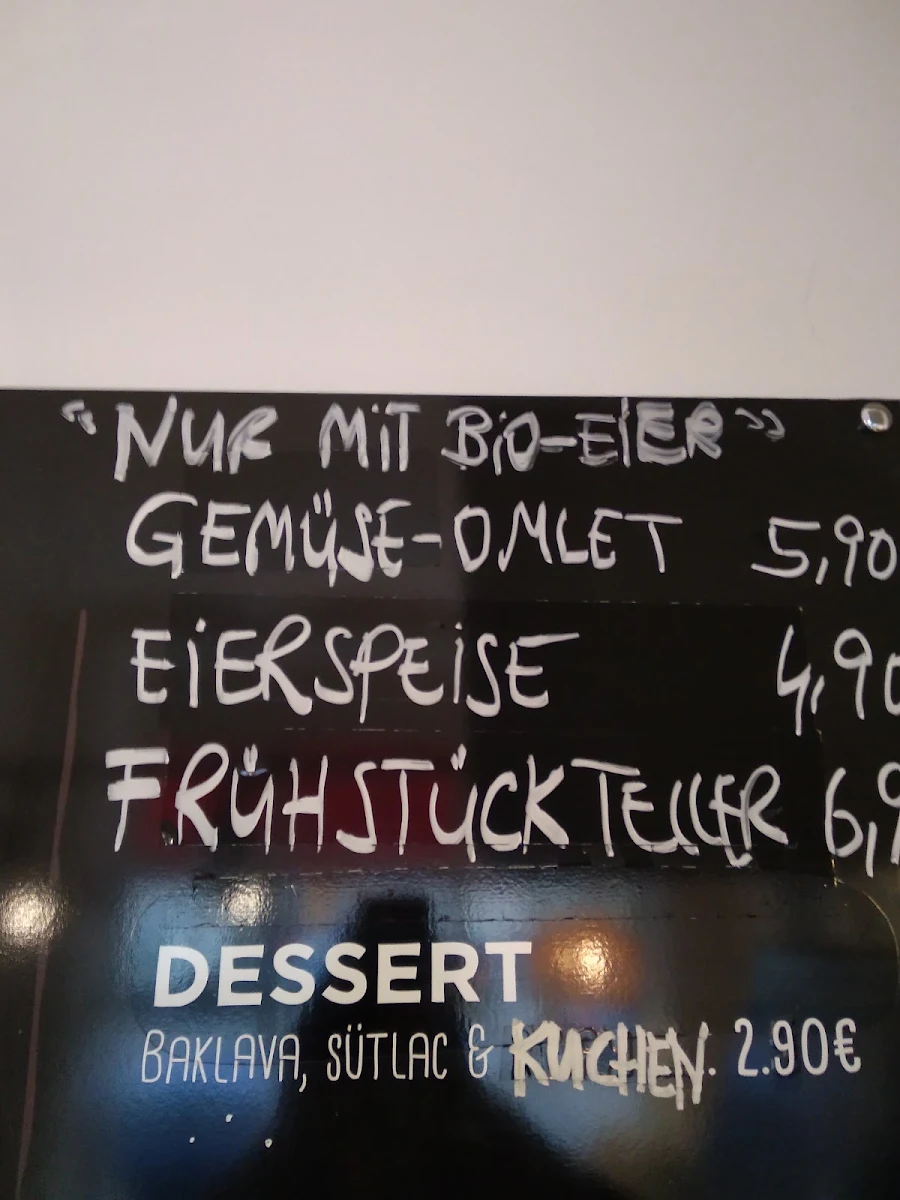 "NUR MiT BiO-EiER"
GEMÜSE-OMLET 5,90
EiERSPEiSE 4,90
FRÜHSTÜCKTELLER 6,9
DESSERT
BAKLAVA, SÜTLAC & KUCHEN. 2.90€